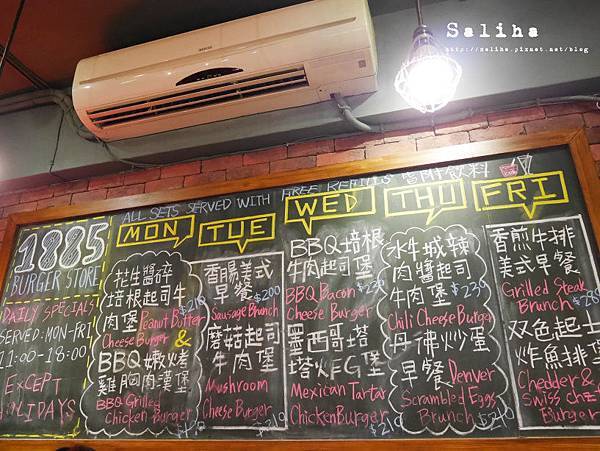 Saliha
http://saliha.pixnet.net/blog
ALL SETS SERVED WITH FREE REFILLS 皆附飲料
1885
BURGER STORE
DAILY SPECIALS
SERVED: MON-FRI
11:00-18:00
EXCEPT
HOLIDAYS
MON
花生醬碎
培根起司牛
肉堡 $210
Peanut Butter
Cheese Burger
&
BBQ嫩烤
雞胸肉漢堡
BBQ Grilled
Chicken Burger
TUE
香腸美式
早餐 $200
Sausage Brunch
蘑菇起司
牛肉堡
Mushroom
Cheese Burger $210
WED
BBQ培根
牛肉起司堡
BBQ Bacon $230
Cheese Burger
墨西哥塔
塔火FG堡
Mexican Tartar
Chicken Burger $210
THU
水牛城辣
肉醬起司
牛肉堡 $230
Chili Cheese Burger
丹佛炒蛋
早餐 Denver
Scrambled Eggs
Brunch $210
FRI
香煎牛排
美式早餐
Grilled Steak
Brunch
双色起士
炸魚排堡
Chedder &
Swiss chz
Burger